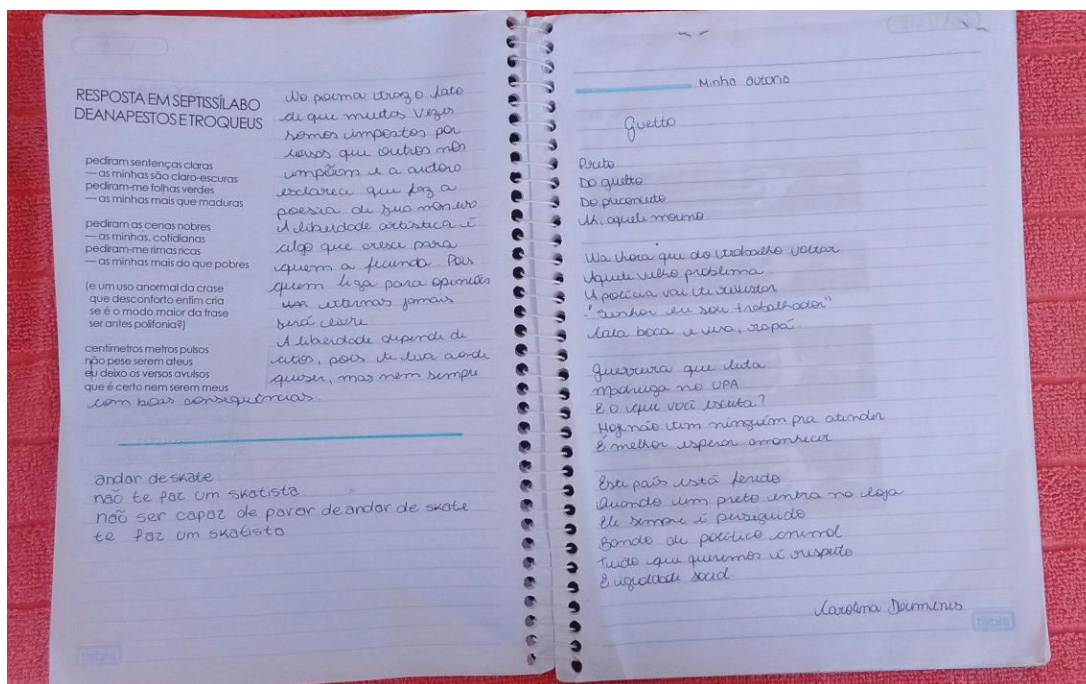 RESPOSTA EM SEPTISSÍLABO
DEANAPESTOS E TROQUEUS
pediram sentenças claras
— as minhas são claro-escuras
pediram-me folhas verdes
— as minhas mais que maduras
pediram as cenas nobres
— as minhas, cotidianas
pediram-me rimas ricas
— as minhas mais do que pobres
(e um uso anormal da crase
que desconforto enfim cria
se é o modo maior da frase
ser antes polifonia?)
centímetros metros pulsos
não pese serem ateus
eu deixo os versos avulsos
que é certo nem serem meus
No poema trago o fato
de que muitas vezes
somos impostos por
coisas que outros nos
impõem e a autora
esclarece que faz a
poesia de sua maneira.
A liberdade artística é
algo que cresce para
quem a fecunda. Pois
quem liga para opiniões
externas jamais
será livre.
A liberdade depende de
atos, pois te leva aonde
quiser, mas nem sempre
com boas consequências.
andar de skate
não te faz um skatista
não ser capaz de parar de andar de skate
te faz um skatista
tilibra
Minha autoria
Guetto
Preto
Do guetto
Do preconceito
Ah, aquele moreno
Na hora que do trabalho voltar
Aquele velho problema
A polícia vai te revistar
-"Senhor eu sou trabalhador"
Cala boca e vaza, rapá.
Guerreira que luta
Madruga na UPA
E o que você escuta?
Hoje não tem ninguém pra atender
É melhor esperar amanhecer
Este país está ferido
Quando um preto entra na loja
Ele sempre é perseguido
Bando de político animal
Tudo que queremos é respeito
E igualdade social
Carolina
tilibra